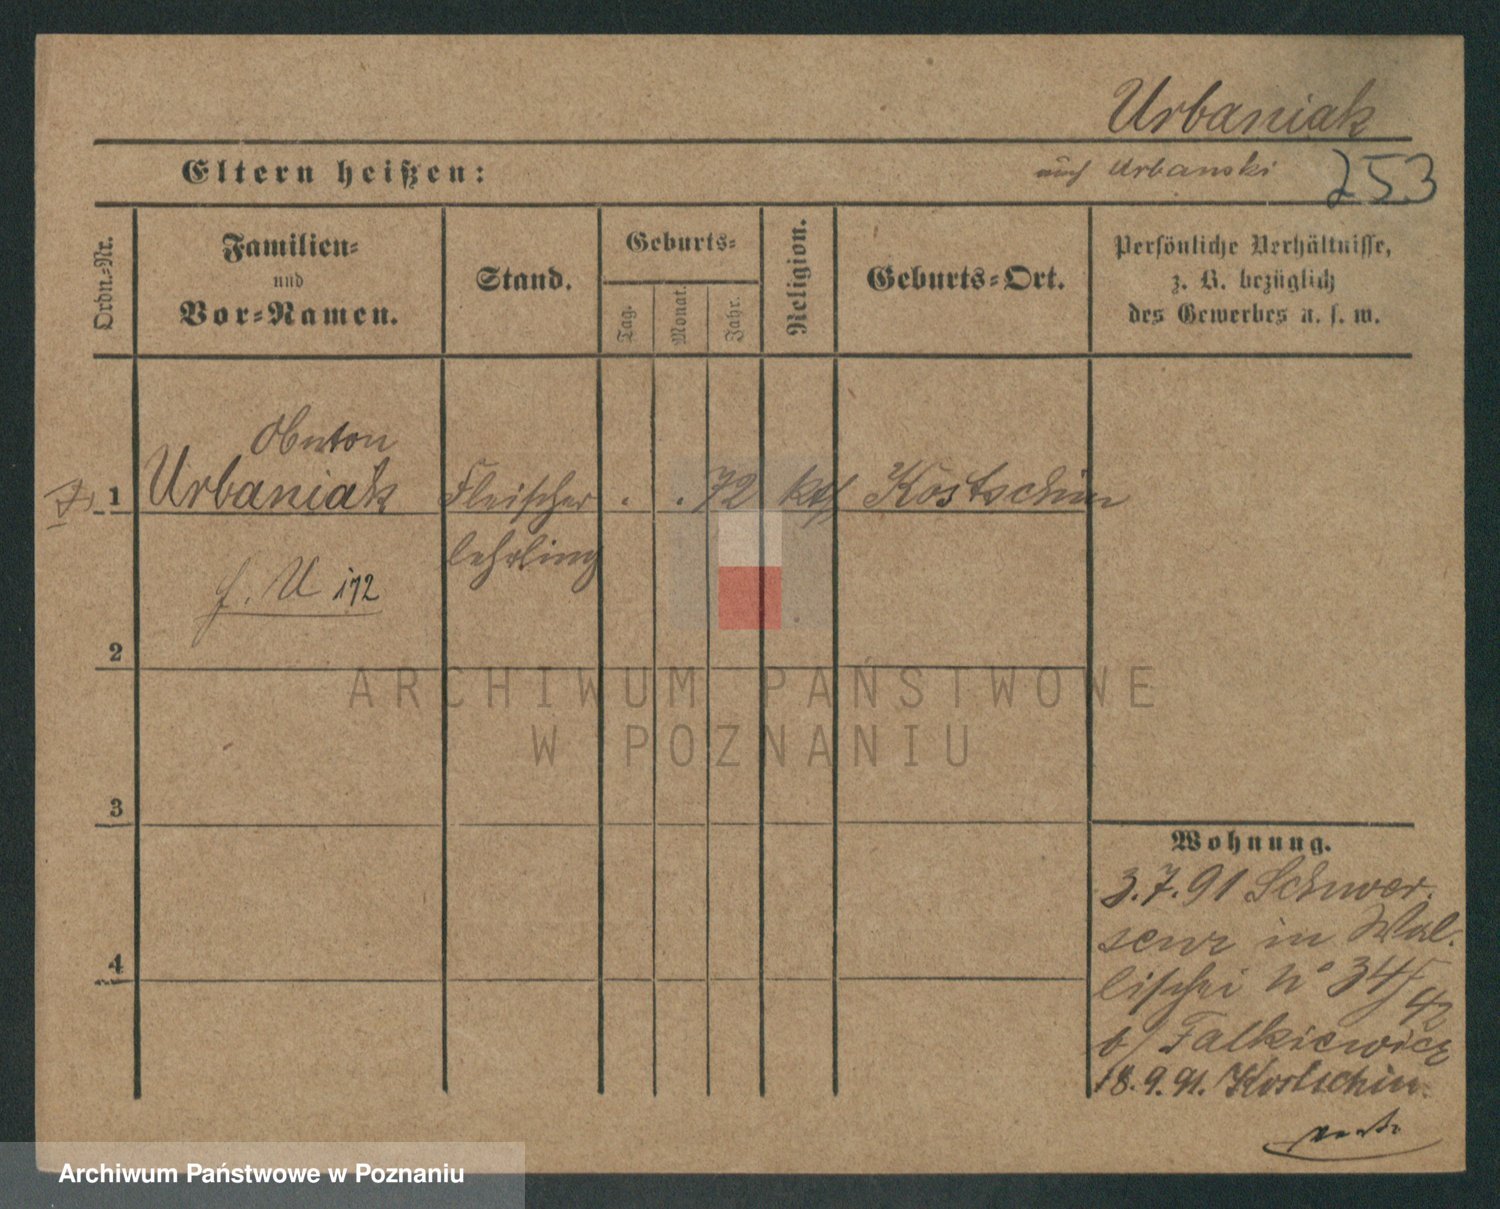 Urbaniak
Eltern heißen:
auch Urbanski
253
Ordn.-Nr.
Familien-
und
Vor-Namen.
Stand.
Geburts-
Tag.
Monat.
Jahr.
Religion.
Geburts-Ort.
Persönliche Verhältnisse,
z. B. bezüglich
des Gewerbes u. s. w.
1
Urbaniak
Fleischer
. . 72
kth
Kostschin
lehrling
f. U 172
2
ARCHIWUM PAŃSTWOWE
W POZNANIU
3
Wohnung.
3.7.91 Schwer.
senz in Wal-
4
lischei No 34/
42
b/ Falkiewicz
18.9.91. Kostschin
Archiwum Państwowe w Poznaniu